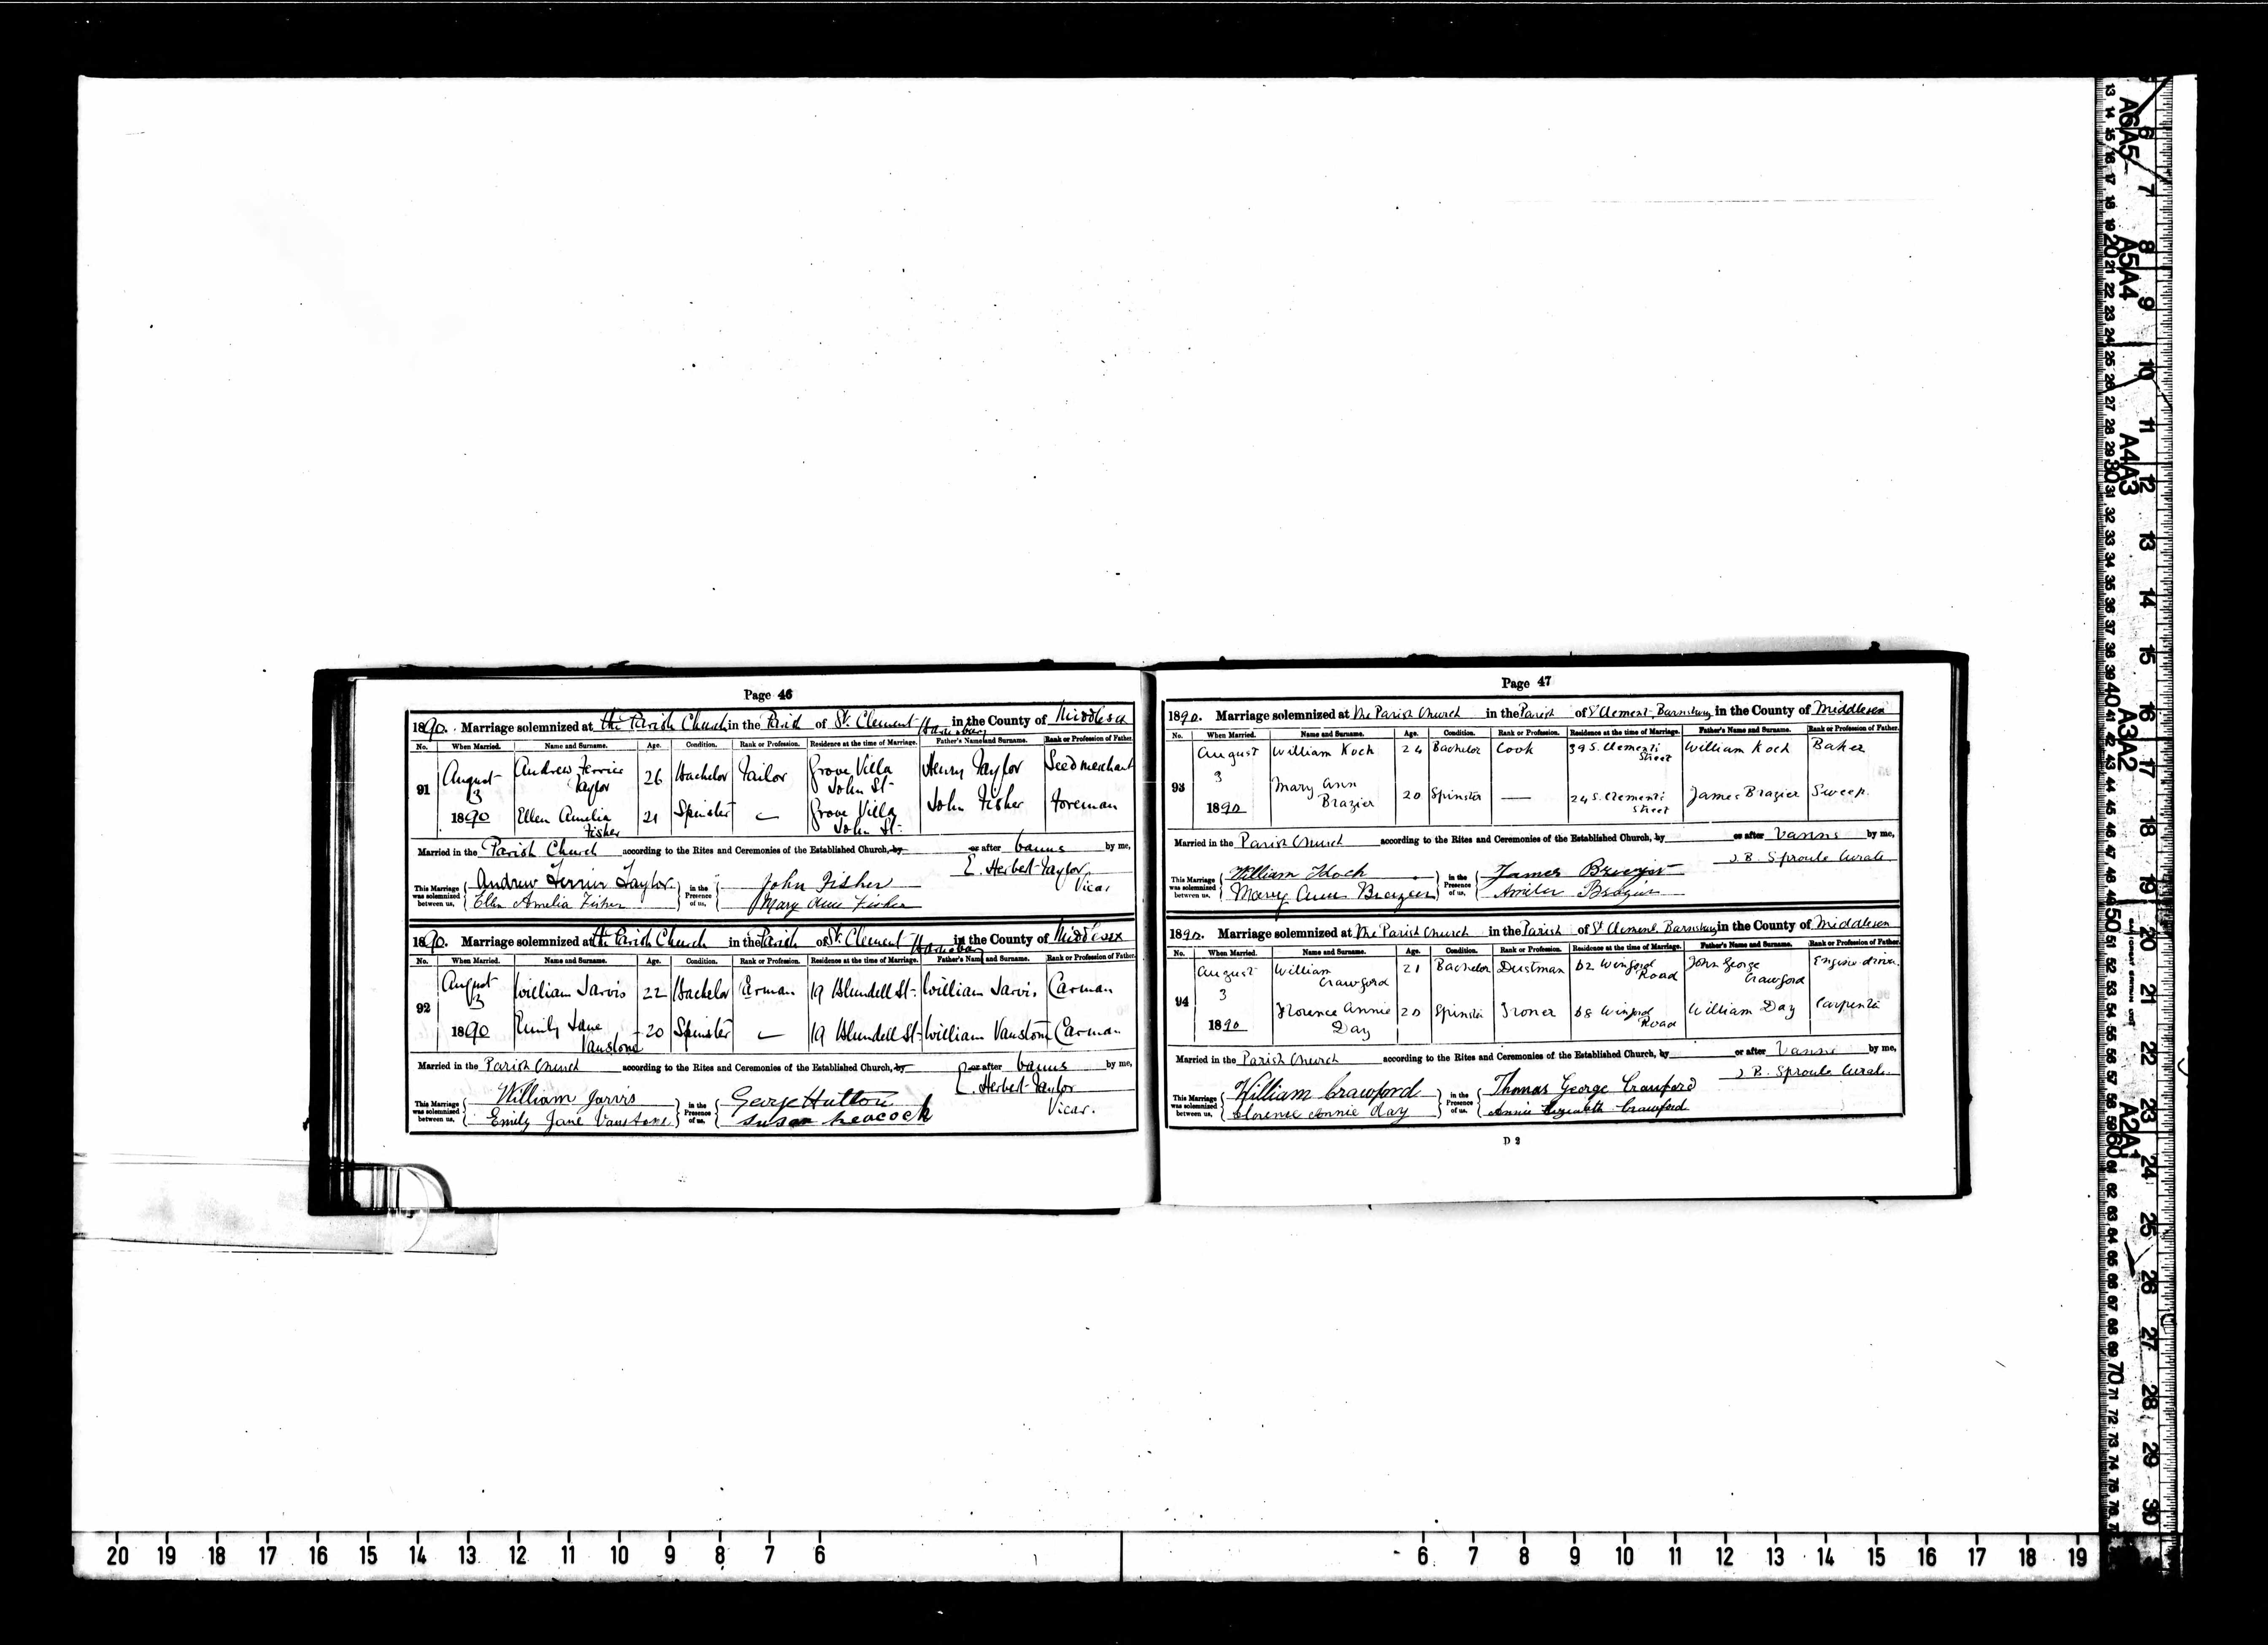 Page 46
1890. Marriage solemnized at the Parish Church in the Parish of St. Clement Barnsbury in the County of Middlesex
No. When Married. Name and Surname. Age. Condition. Rank or Profession. Residence at the time of Marriage. Father's Name and Surname. Rank or Profession of Father.
91 August 3 1890 Andrew Ferrier Taylor 26 Bachelor Tailor Grove Villa John St. Henry Taylor Seed merchant
Ellen Amelia Fisher 21 Spinster — Grove Villa John St. John Fisher Foreman
Married in the Parish Church according to the Rites and Ceremonies of the Established Church, by or after banns by me,
E. Herbert Taylor Vicar
This Marriage was solemnized between us, Andrew Ferrier Taylor Ellen Amelia Fisher in the Presence of us, John Fisher Mary Ann Fisher
1890. Marriage solemnized at the Parish Church in the Parish of St. Clement Barnsbury in the County of Middlesex
No. When Married. Name and Surname. Age. Condition. Rank or Profession. Residence at the time of Marriage. Father's Name and Surname. Rank or Profession of Father.
92 August 3 1890 William Jarvis 22 Bachelor Carman 19 Blundell St. William Jarvis Carman
Emily Jane Vanstone 20 Spinster — 19 Blundell St. William Vanstone Carman
Married in the Parish Church according to the Rites and Ceremonies of the Established Church, by or after banns by me,
E. Herbert Taylor Vicar.
This Marriage was solemnized between us, William Jarvis Emily Jane Vanstone in the Presence of us, George Hutton Susan heacock
Page 47
1890. Marriage solemnized at the Parish Church in the Parish of St Clement Barnsbury in the County of Middlesex
No. When Married. Name and Surname. Age. Condition. Rank or Profession. Residence at the time of Marriage. Father's Name and Surname. Rank or Profession of Father.
93 August 3 1890 William Koch 24 Bachelor Cook 39 S. Clements Street William Koch Baker
Mary Ann Brazier 20 Spinster — 24 S. Clements Street James Brazier Sweep.
Married in the Parish Church according to the Rites and Ceremonies of the Established Church, by or after Banns by me,
J. B. Sproule Curate
This Marriage was solemnized between us, William Koch Mary Ann Brazier in the Presence of us, James Brazier Amelia Brazier
1890. Marriage solemnized at the Parish Church in the Parish of St Clement, Barnsbury in the County of Middlesex
No. When Married. Name and Surname. Age. Condition. Rank or Profession. Residence at the time of Marriage. Father's Name and Surname. Rank or Profession of Father.
94 August 3 1890 William Crawford 21 Bachelor Dustman 62 Winford Road John George Crawford Engine driver.
Florence Annie Day 20 Spinster Ironer 68 Winford Road William Day Carpenter
Married in the Parish Church according to the Rites and Ceremonies of the Established Church, by or after Banns by me,
J. B. Sproule Curate.
This Marriage was solemnized between us, William Crawford Florence Annie Day in the Presence of us, Thomas George Crawford Annie Elizabeth Crawford
D 2
20 19 18 17 16 15 14 13 12 11 10 9 8 7 6
6 7 8 9 10 11 12 13 14 15 16 17 18 19